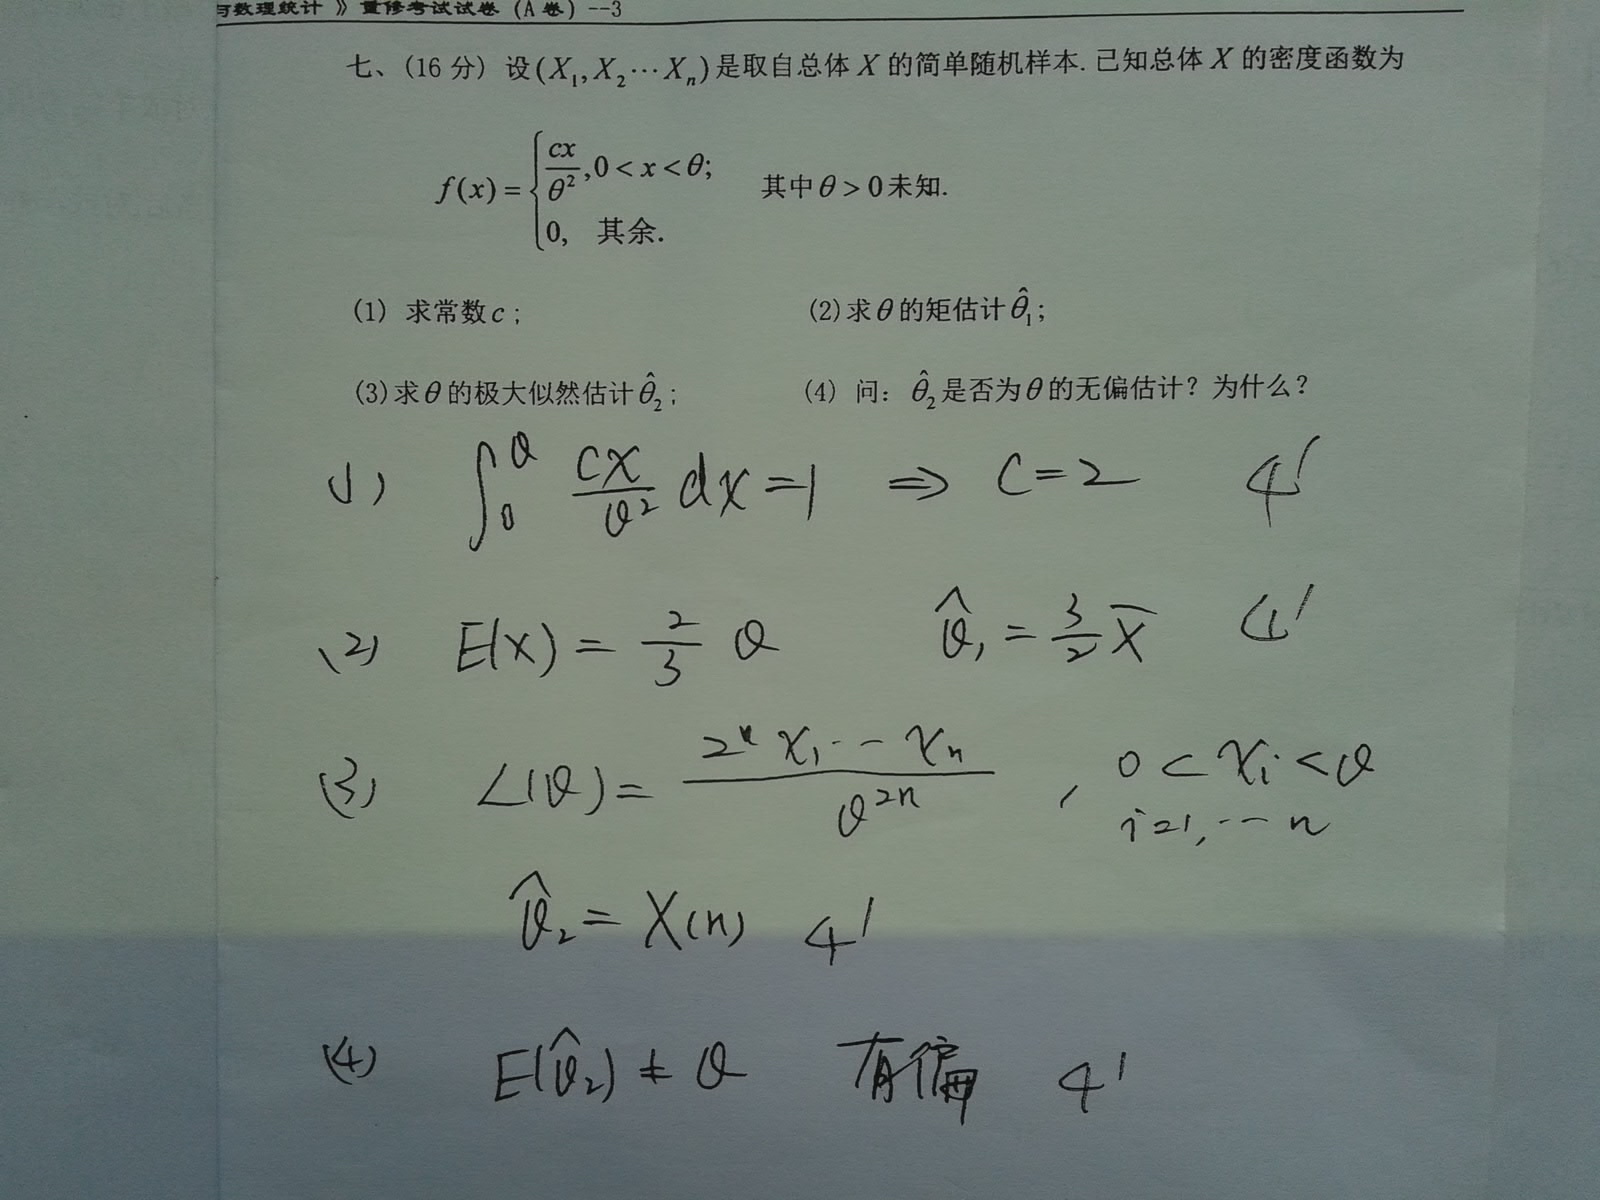 与数理统计 》重修考试试卷 (A 卷) --3
七、(16 分) 设(X₁, X₂ ⋯ Xₙ)是取自总体 X 的简单随机样本. 已知总体 X 的密度函数为
f(x) = { cx/θ², 0 < x < θ; 0, 其余. 其中θ > 0未知.
(1) 求常数c; (2)求θ的矩估计θ̂₁;
(3)求θ的极大似然估计θ̂₂; (4) 问: θ̂₂是否为θ的无偏估计? 为什么?
(1) ∫₀^θ cx/θ² dx = 1 ⇒ C = 2 4'
(2) E(X) = 2/3 θ θ̂₁ = 3/2 X̄ 4'
(3) L(θ) = 2ⁿ x₁ ⋯ xₙ / θ²ⁿ , 0 < xᵢ < θ
i=1, ⋯ n
θ̂₂ = X(n) 4'
(4) E(θ̂₂) ≠ θ 有偏 4'